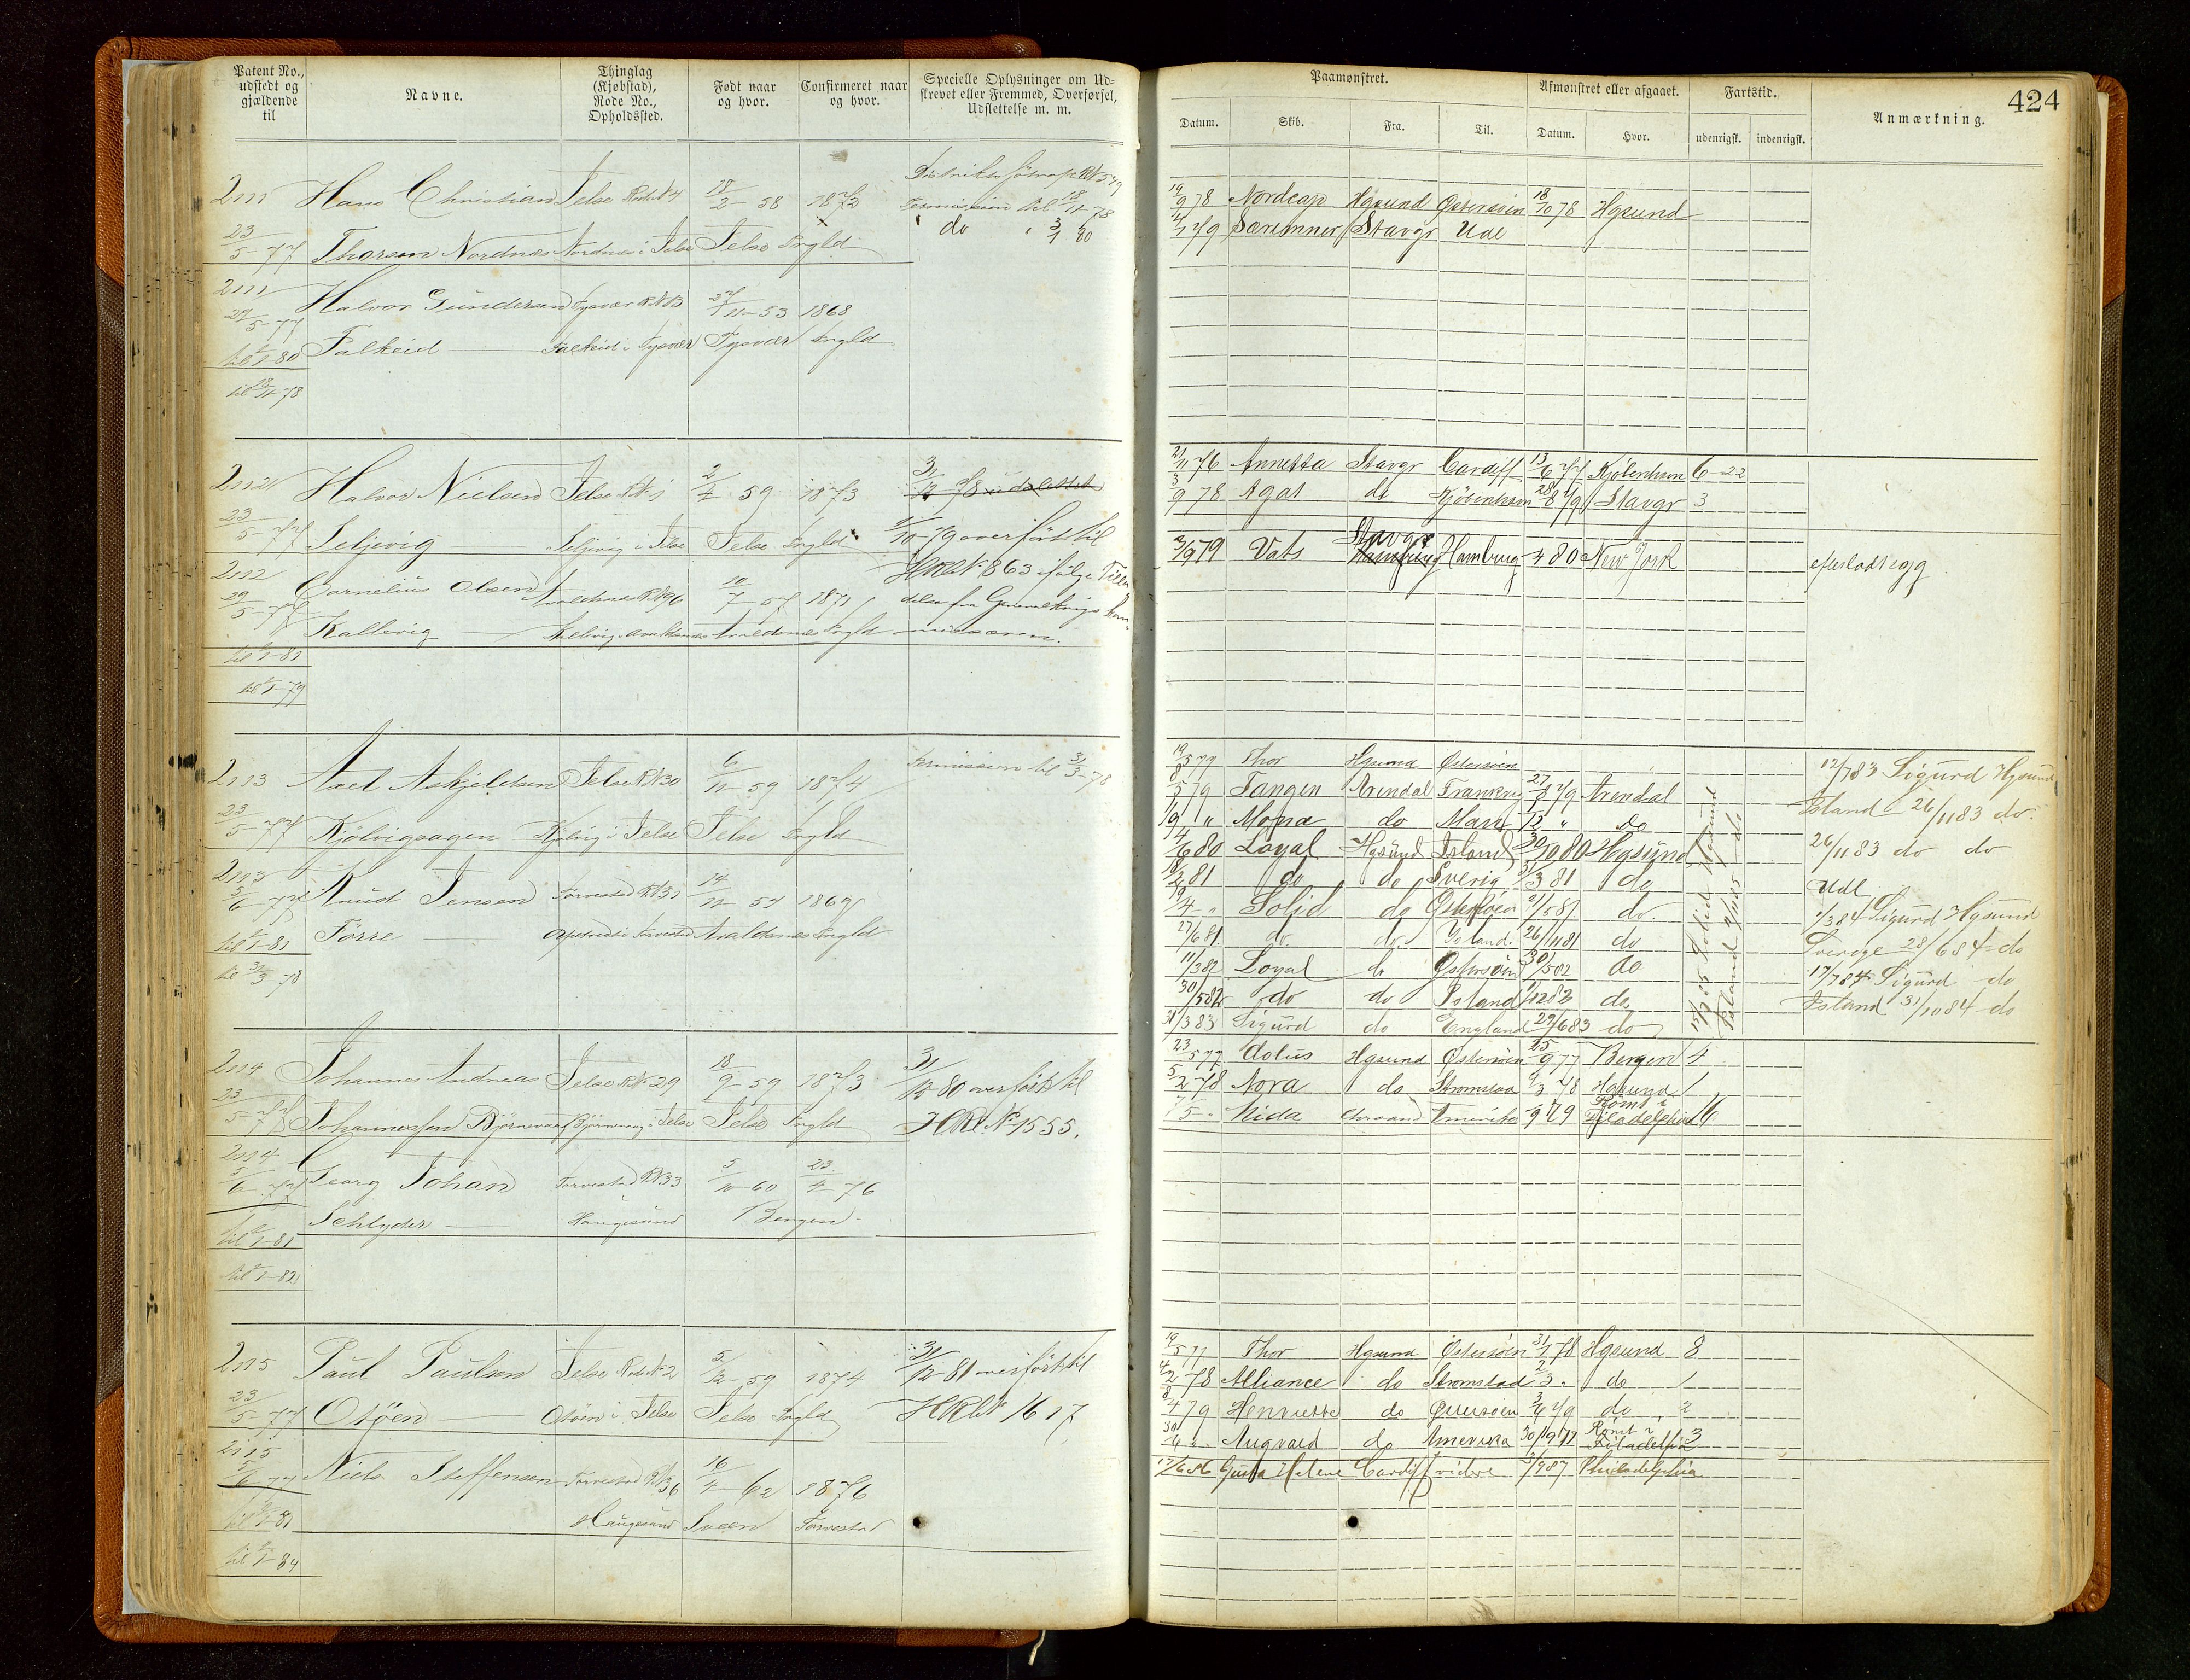 Patent No., udstedt og gjældende til
Navne.
Thinglag (Kjøbstad), Rode No., Opholdssted.
Født naar og hvor.
Confirmeret naar og hvor.
Specielle Oplysninger om Udskrevet eller Fremmed, Overførsel, Udslettelse m. m.
Paamønstret.
Afmønstret eller afgaaet.
Fartstid.
Anmærkning.
424
Datum. Skib. Fra. Til. Datum. Hvor. udenrigsk. indenrigsk.
2111 Hans Christian Jelse Rode No 4 18/2 58 1872
Permission til 18/11 78
do 3/1 80
23/5 77 Thorsen Nordnes Nordnes i Jelse Jelse Ryfld
2111 Halvor Gundersen Tysvær RN 13 11 53 1868
29/5 77
til 1/1 80 Falkeid Falkeid i Tysvær Tysvær Ryfld
til 18/11 78
19/9 78 Nordcap Hgsund Østersøen 18/10 78 Hgsund
Særimner Stavgr Udl
2112 Halvor Nielsen Jelse RN 1 2/4 59 1873 31/12 78 udslettet
23/5 77 Seljevig Seljevig i Jelse Jelse Ryfld 79 overført til
2112 Cornelius Olsen Avaldsnes RN 96 10/7 57 1871 HRN 863 ifølge
29/5 77 Kallevig Avaldsnes Avaldsnes Ryfld
til 1/1 81
til 1/1 79
21/11 76 Annetta Stavgr Cardiff 13/6 77 Kjøbenhavn 6-22
3/9 78 Agat do Kjøbenhavn 28/8 79 Stavgr 3
Stavgr
79 Vats Hamburg 80 New York efterladt syg
2113 Axel Askjeldsen Jelse RN 30 6/11 59 1874 Permission til 31/3 78
23/5 77 Kjølvigvaagen Kjølvig i Jelse Jelse Ryfld
2113 Knud Jensen Torvestad RN 31 14/11 54 1869
5/6 77
til 1/1 81 Førre Torvestad Avaldsnes Ryfld
til 31/3 78
19/3 79 Thor Hgsund Østersøen
8/5 79 Tangen Arendal Frankrig 27/ 79 Arendal
19 " Mona do 12 " do
14/6 80 Loyal Hgsund Island 30/10 80 Hgsund
81 do do Sverig /3 81 do
19/4 " Solid do Østersøen 21/5 81 do
27/6 81 do do Island 26/11 81 do
11/3 82 Loyal do Østersøen 30/5 82 do
30/5 82 do do Island /12 82 do
31/3 83 Sigurd do England 29/6 83 do
12/7 83 Sigurd Hgsund
Island 26/11 83 do
26/11 83 do do
Udl
1/3 84 Sigurd Hgsund
Sverige 28/6 84 do
17/7 84 Sigurd do
Island 31/10 84 do
2114 Johannes Andreas Jelse RN 29 18/9 59 1873 31/12 80 overført til
23/5 77 Johannessen Bjørnevaag Bjørnevaag i Jelse Jelse Ryfld HRN 1555.
2114 Georg Johan Torvestad RN 33 5/10 60 23/4 76
5/6 77
til 1/1 81 Schlyder Haugesund Bergen
til 1/1 82
23/5 77 Æolus Hgsund Østersøen 25/9 77 Bergen 4
5/2 78 Nora do Strømstad 9/3 78 Hgsund 1
Rømt i
Nida Amerika 9 79 Filadelphia 16
2115 Paul Paulsen Jelse Rode No 2 5/12 59 1874 31/12 81 overført til
23/5 77 Otøen Otøen i Jelse Jelse Ryfld HRN 1617
2115 Niels Steffensen Torvestad RN 36 16/4 62 1876
5/6 77
til 1/1 81 Haugesund Sveen Torvestad
til 1/1 84
19/5 77 Thor Hgsund Østersøen 31/1 78 Hgsund 8
4/2 78 Alliance do Strømstad 2/3 " do 1
8/4 79 Henriette do Østersøen 3/6 79 do 2
Rømt i
30/6 " Augvald do Amerika 30/9 Filadelfia 3
17/6 86 Gusta Helene Cardiff videre 87 Philadelphia